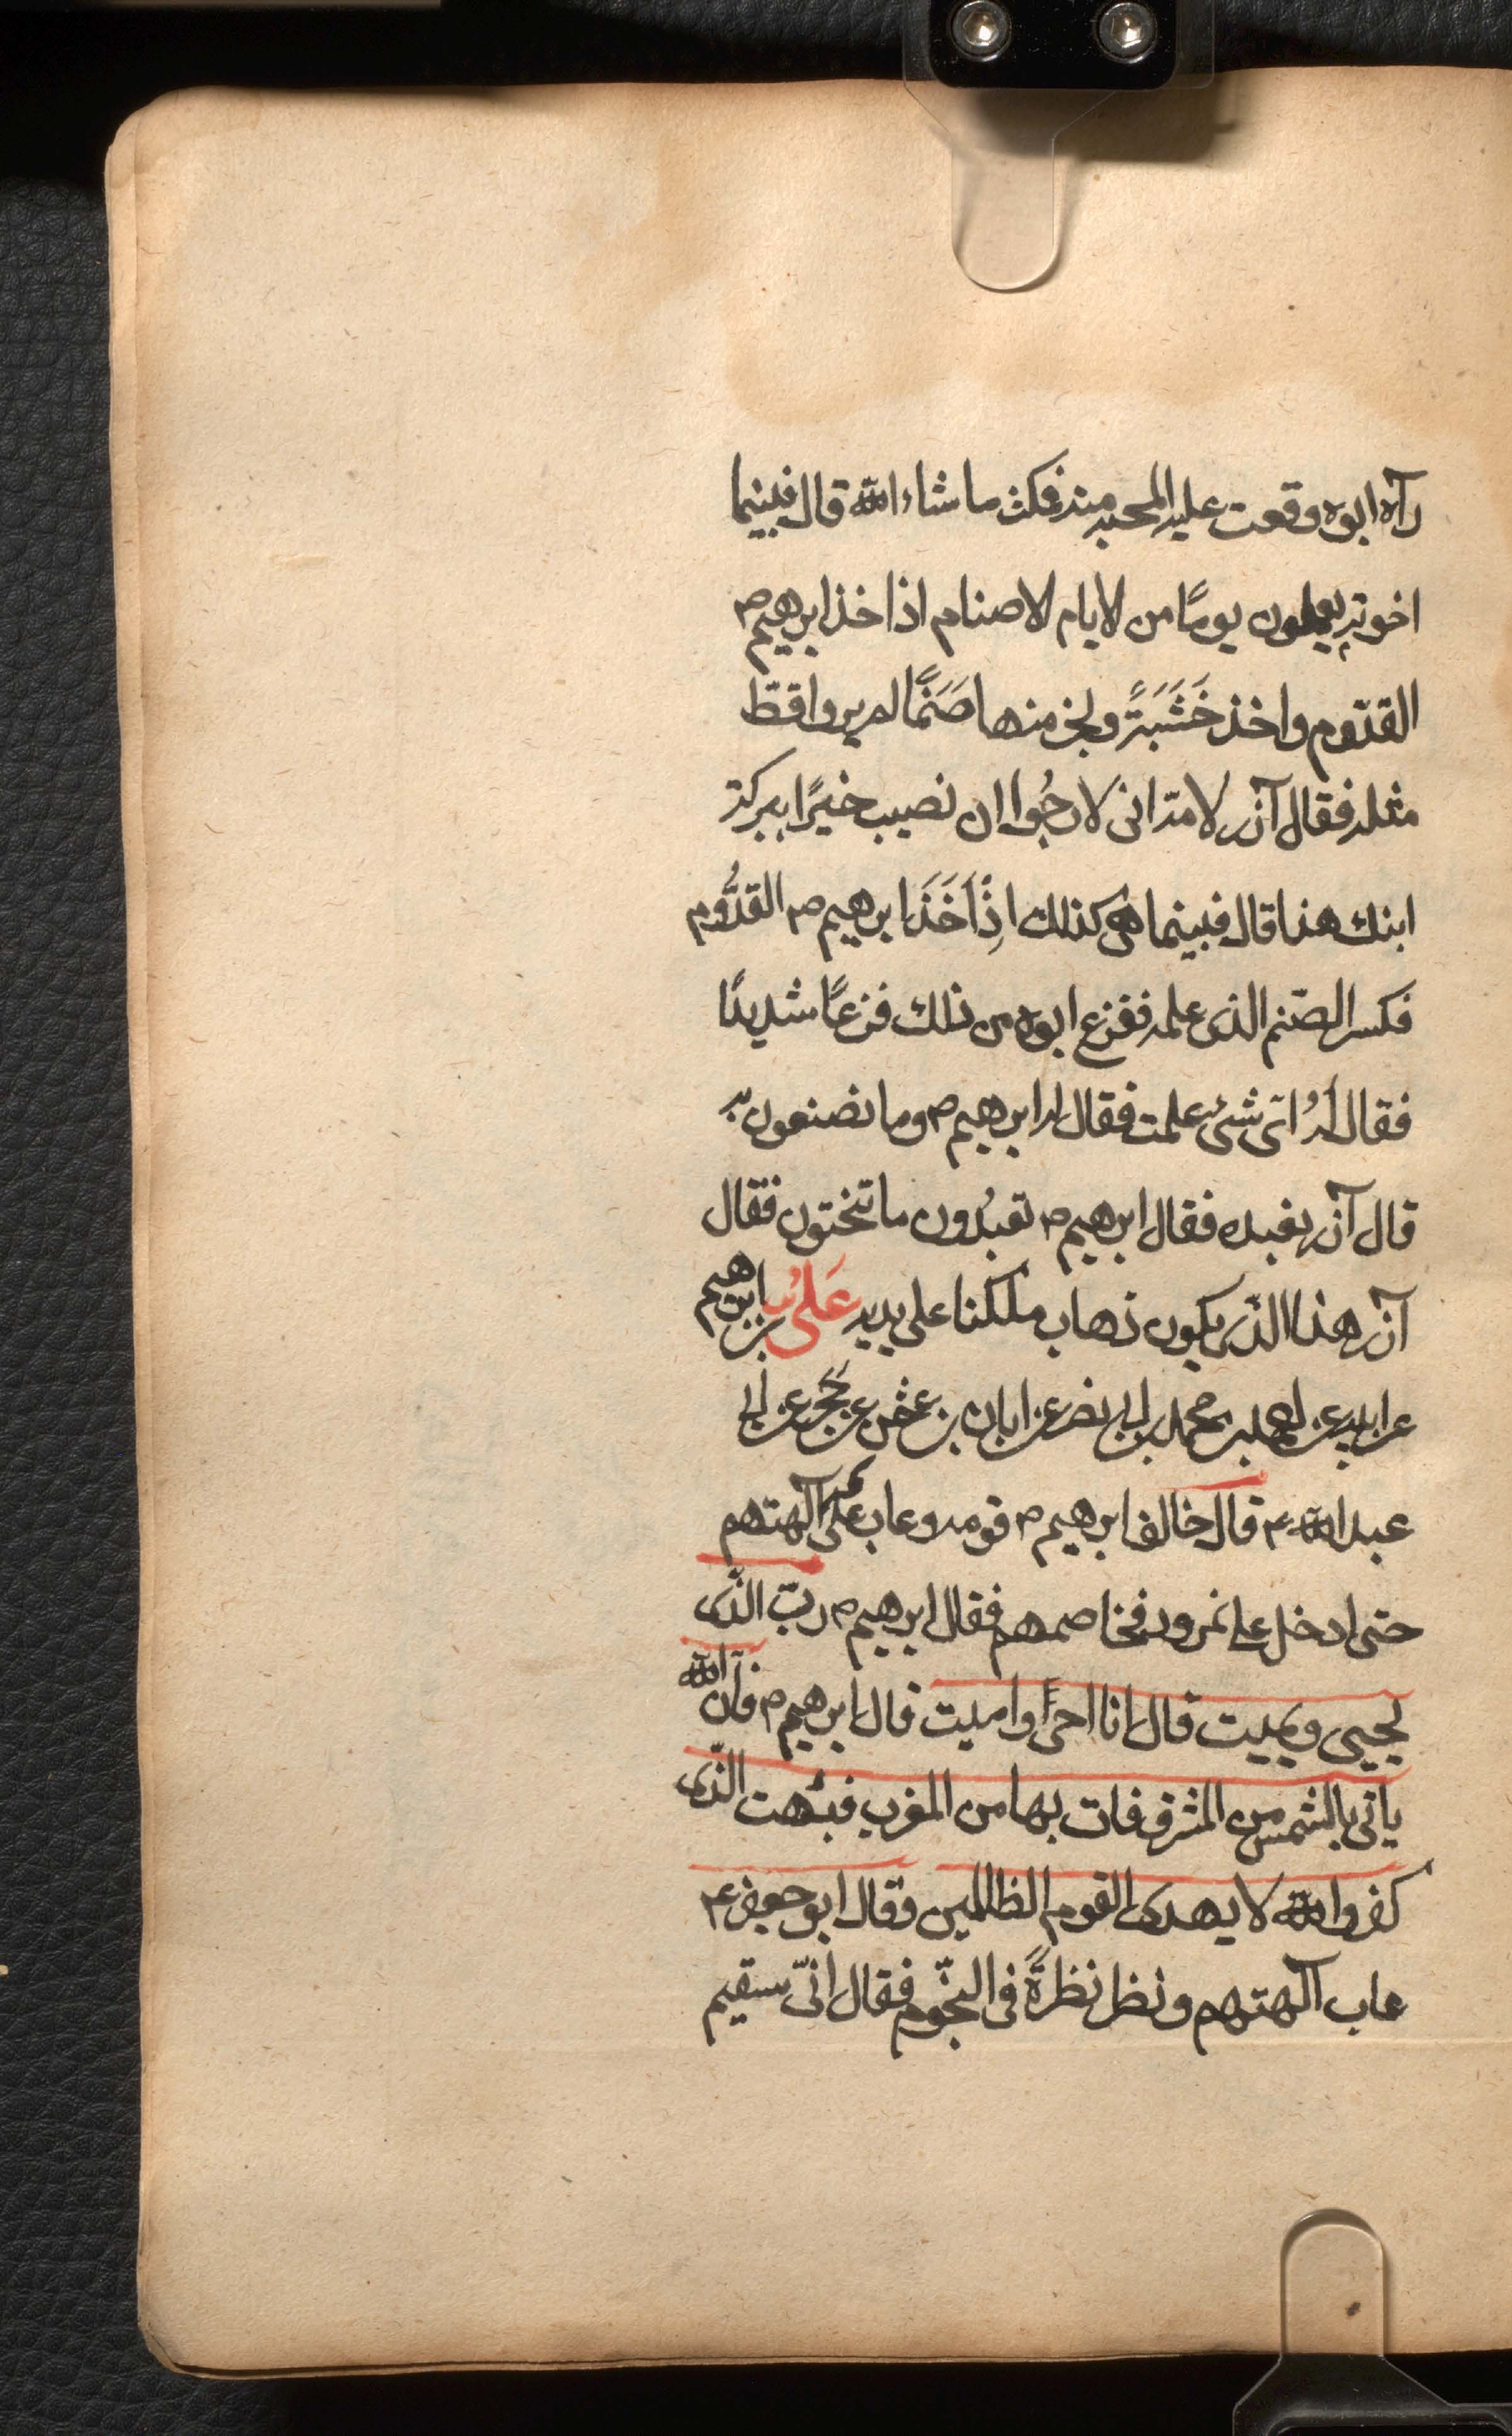 رآه ابوه وقعت عليه المحبه منه فمكث ما شاء الله قال فبينما
اخوته يعملون يومًا من لايام لاصنام اذا خذ ابرهيم ص
القدّوم واخذ خَشَبَةً ونجر منها صَنَمًا لم يروا قطّ
مثله فقال آزر لامّه انى لارجُوا ان نصيب خيرًا ببركة
ابنك هذا قال فبينما هى كذلك اِذًا اَخَذَ ابرهيم ص القدُّوم
فكسر الصّنم الذى عمله ففزع ابوه من ذلك فزعًا شديدًا
فقال لهُ اىّ شئ عملت فقال له ابرهيم ص وما تصنعون به
قال آزر نعبده فقال ابرهيم ص تعبدُون ما تنحتون فقال
آزر هذا الذى يكون ذهاب ملكنا على يديه عَلىُّ بن ابرهيم
عن ابيه عن احمد بن محمد بن ابى نصر عن ابان بن عثمن عن حَجَر عن ابى
عبد الله ع قال خالف ابرهيم ص قومه وعاب على آلهتهم
حتى ادخل على نمرود فخاصمهم فقال ابرهيم ص ربّى الذى
يحيى ويميت قال انا احى وامـيت قال ابرهيم ص فانّ الله
ياتى بالشمس من المشرق فات بها من المغرب فبُهت الذى
كفر والله لا يهدى القوم الظالمين وقال ابو جعفر ع
عاب آلهتهم ونظر نظرةً فى النجّوم فقال انىّ سقيم